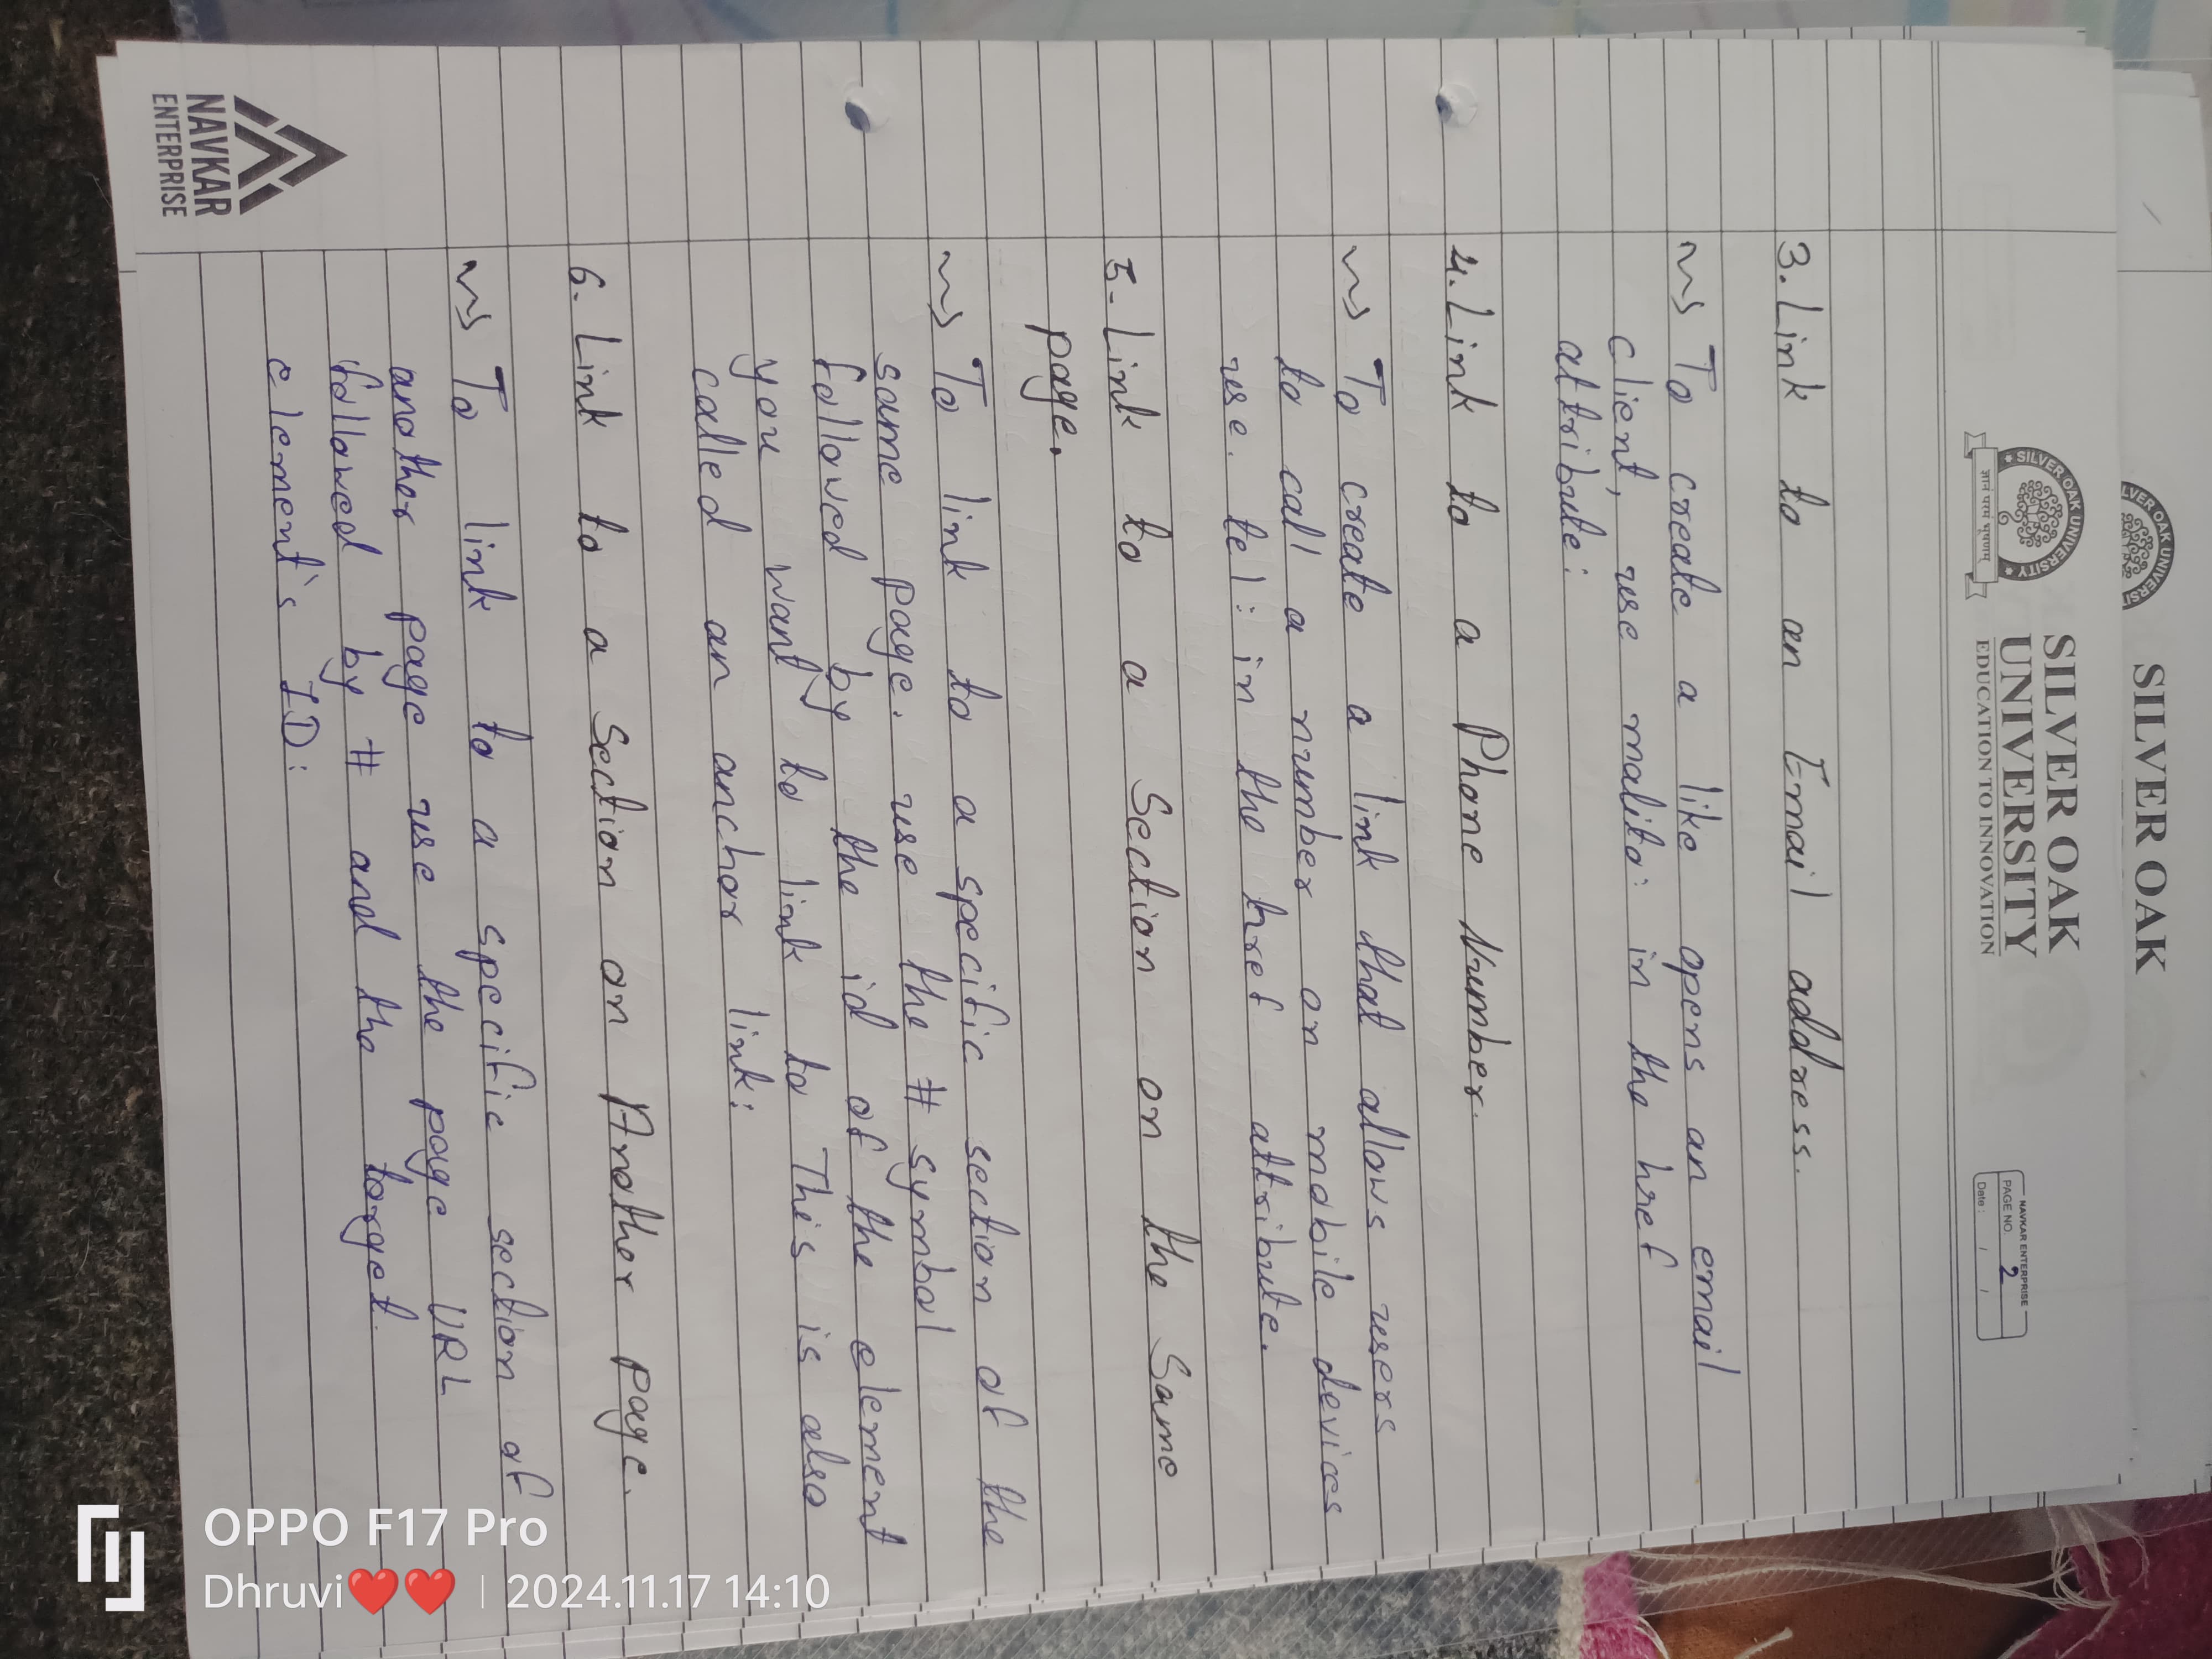 SILVER OAK
SILVER OAK
UNIVERSITY
EDUCATION TO INNOVATION
SILVER OAK UNIVERSITY
ज्ञानं परमं भूषणम्
NAVKAR ENTERPRISE
PAGE NO. 2
Date : / /
3. Link to an Email address.
~> To create a like opens an email
client, use malito: in the href
attribute:
4. Link to a Phone Number.
~> To create a link that allows users
to call a number on mobile devices
use. tel: in the href attribute.
5- Link to a Section on the Same
page.
~> To link to a specific section of the
same page. use the # symbol
followed by the id of the element
you want to link to This is also
called an anchor link:
6- Link to a Section on Another page.
~> To link to a specific section of
another page use the page URL
followed by # and the target
element's ID:
NAVKAR
ENTERPRISE
OPPO F17 Pro
Dhruvi❤️❤️ | 2024.11.17 14:10